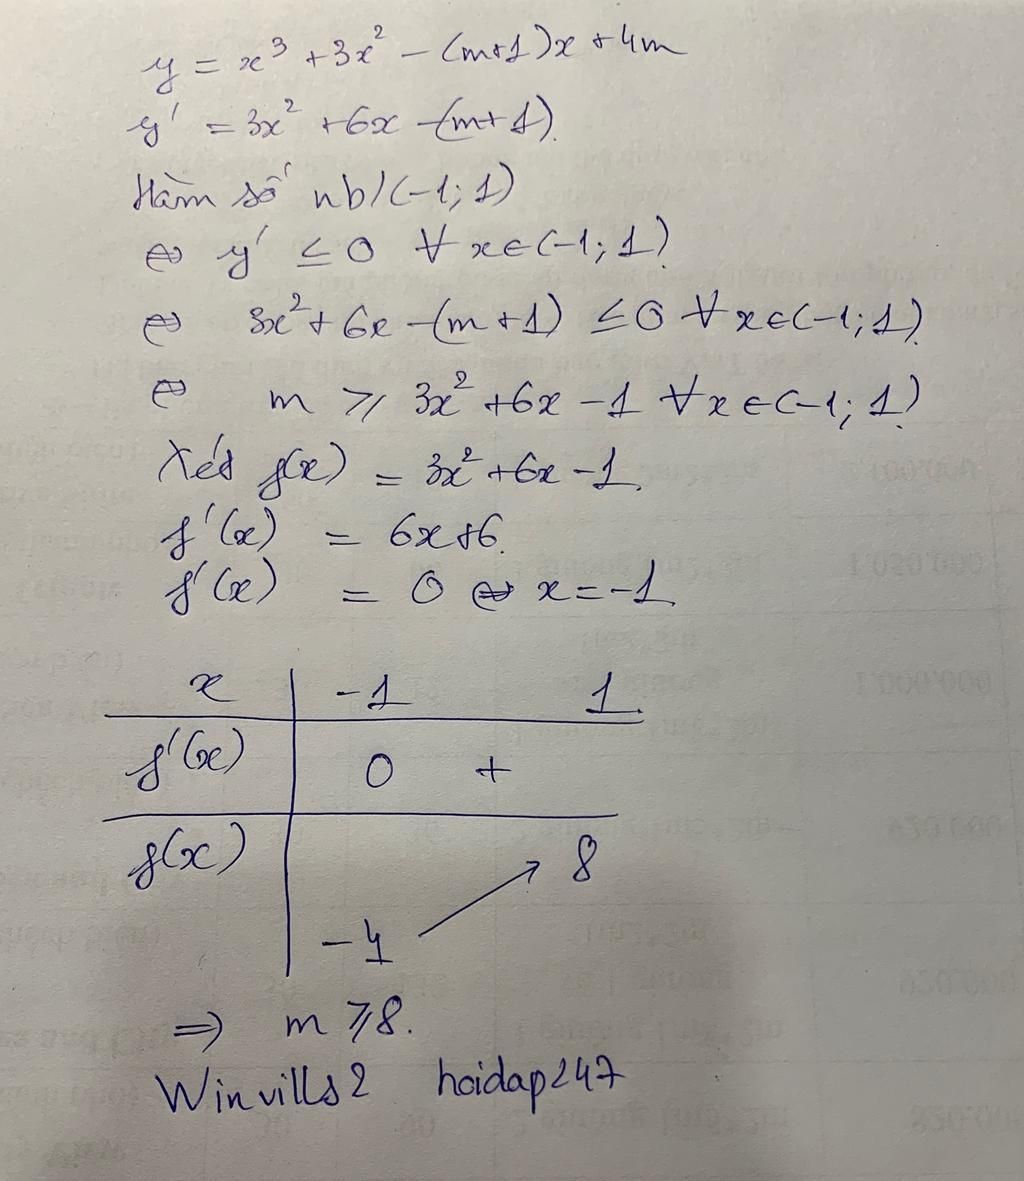 y = x³ + 3x² - (m+1)x + 4m
y' = 3x² + 6x - (m+1).
Hàm số nb/(-1; 1)
⇔ y' ≤ 0 ∀ x∈(-1; 1)
⇔ 3x² + 6x - (m+1) ≤ 0 ∀ x∈(-1; 1).
⇔ m ≥ 3x² + 6x - 1 ∀ x∈(-1; 1).
Xét f(x) = 3x² + 6x - 1.
f'(x) = 6x+6.
f'(x) = 0 ⇔ x = -1.
x -1 1.
f'(x) 0 +
f(x) 8
-4
⇒ m ≥ 8.
Winvills2 hoidap247